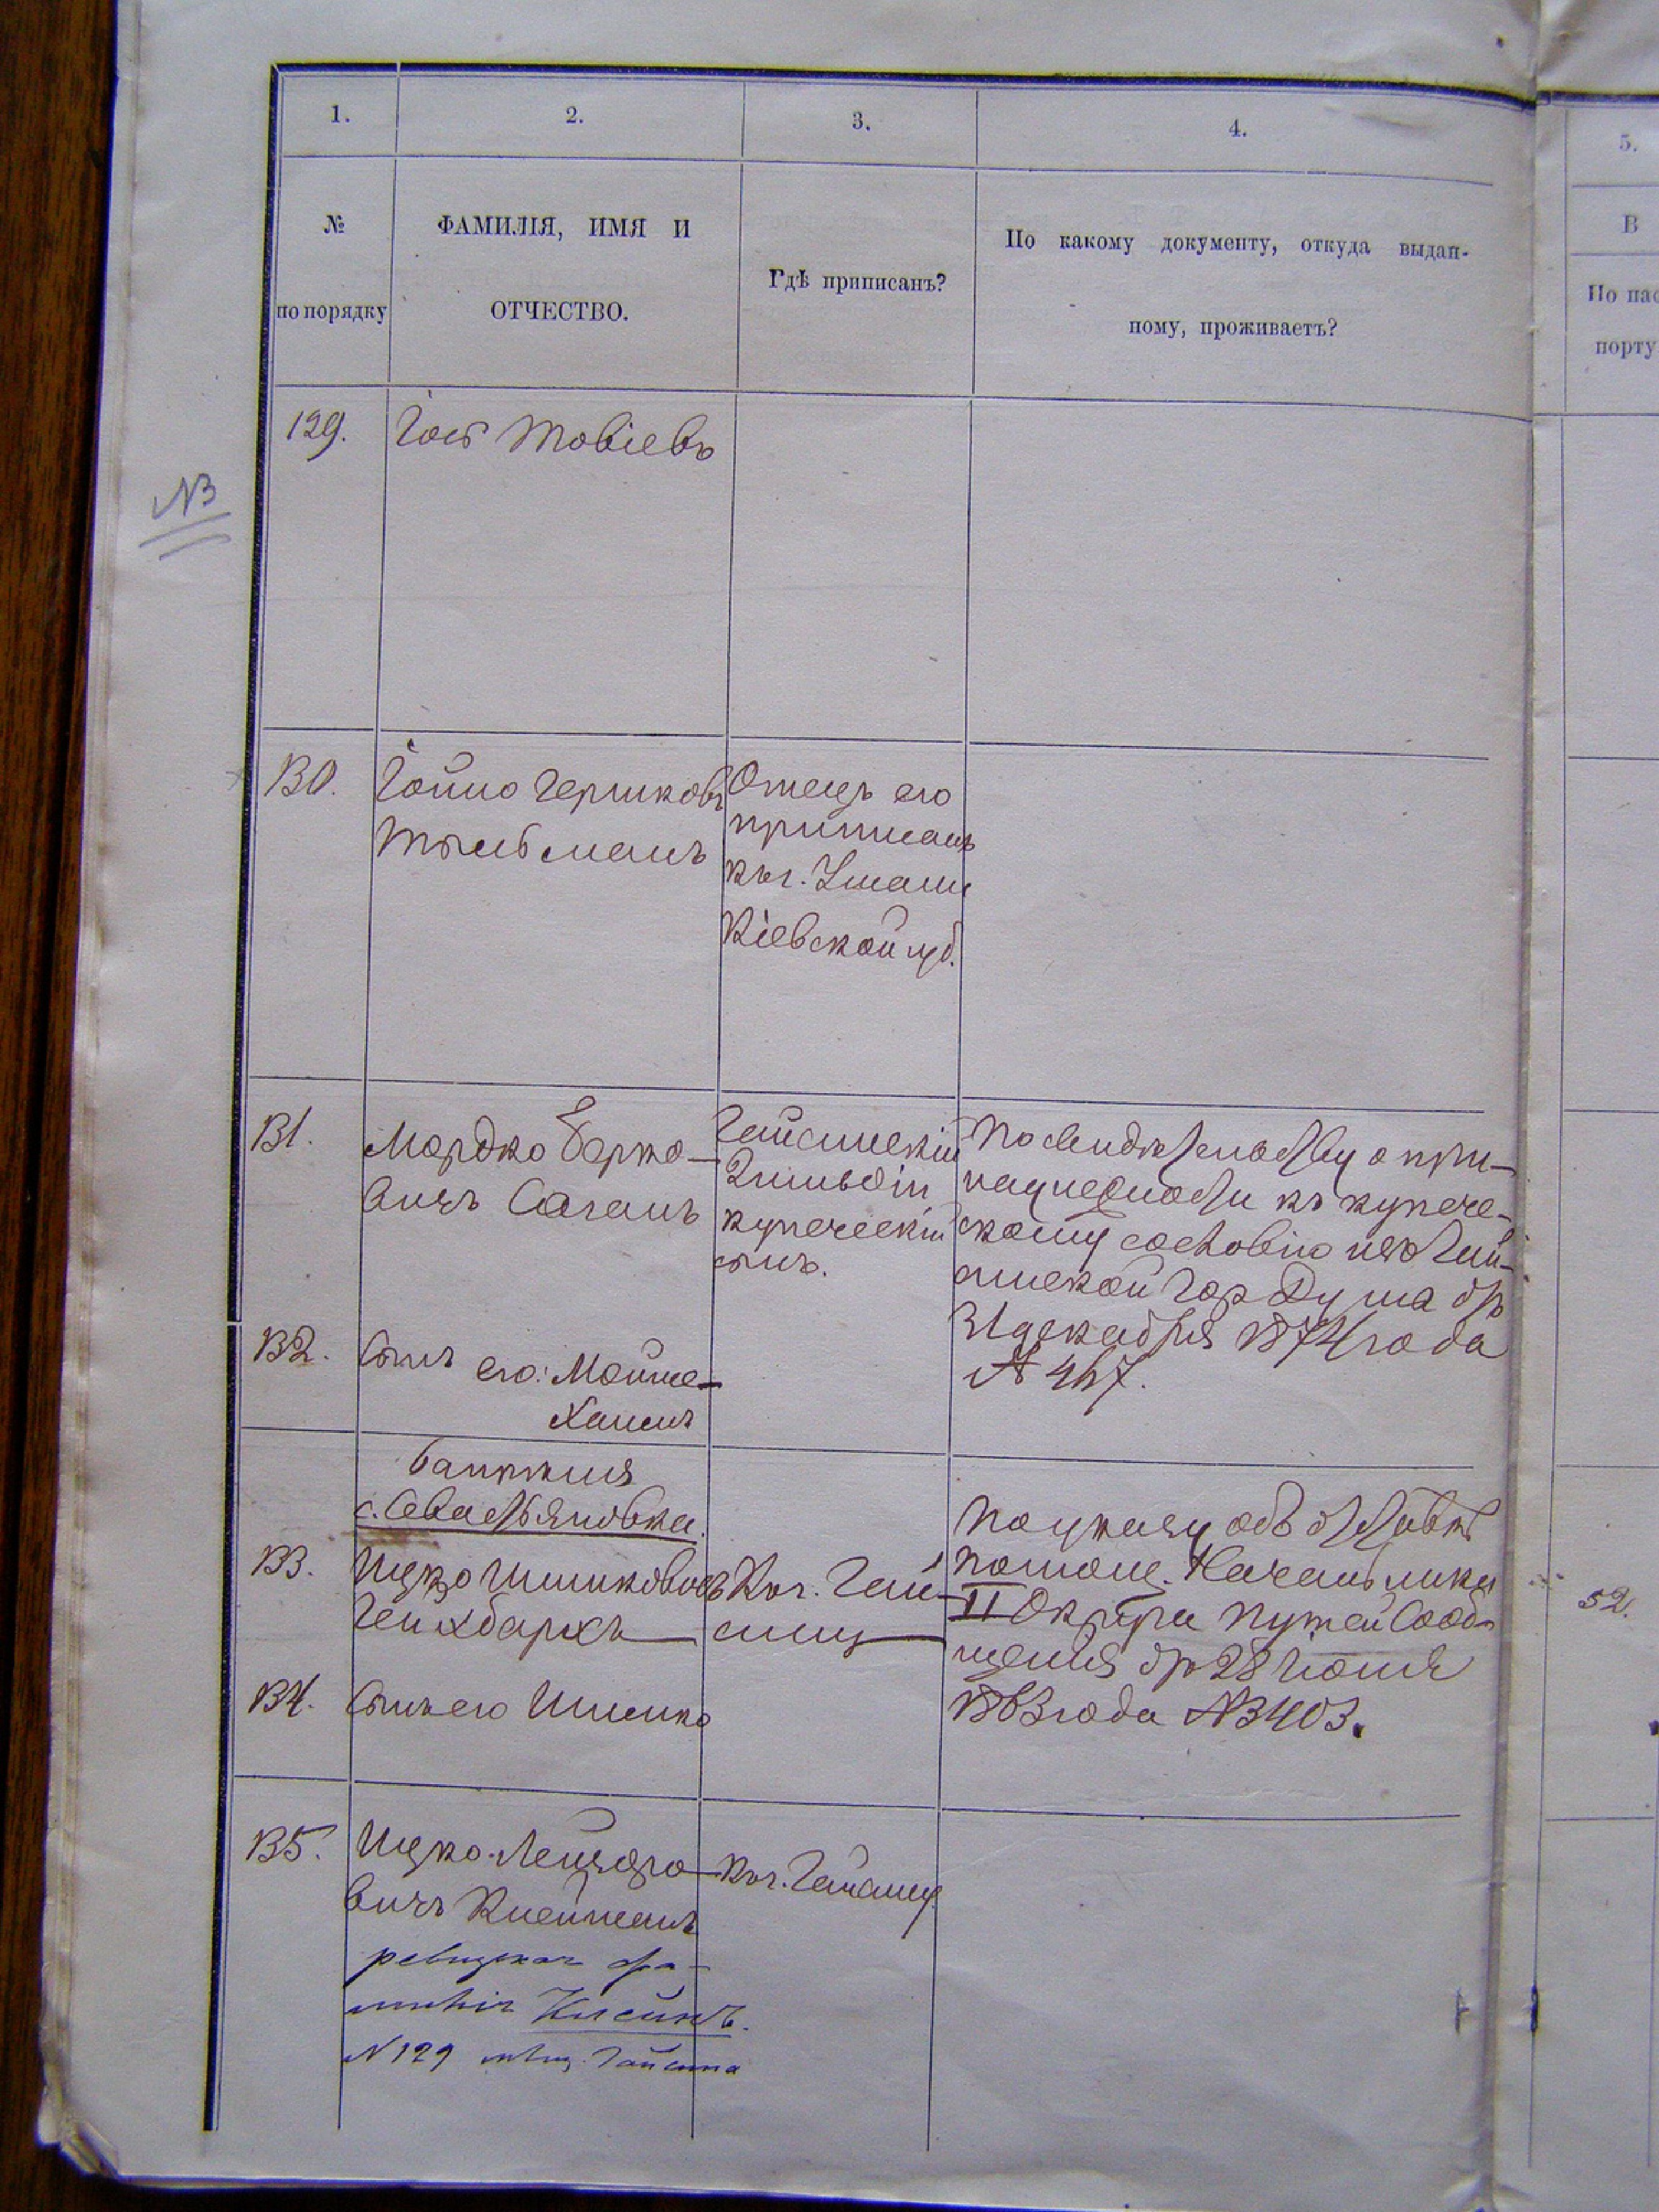 1. 2. 3. 4. 5.
№
по порядку
ФАМИЛІЯ, ИМЯ И
ОТЧЕСТВО.
Гдѣ приписанъ?
По какому документу, откуда выдан-
ному, проживаетъ?
В
По пас
порту
129. Іось Товіевъ
NB
130. Іойно Гершковъ
Тыльманъ
Отецъ его
приписанъ
къ г. Умани
Кіевской губ.
131. Мордко Берко-
вичъ Саганъ
Гайсинскій
2 гильдіи
купеческій
сынъ.
По свидѣтельству о при-
надлежности къ купече-
скому сословію изъ Гай-
синской Гор Думы отъ
31 декабря 1874 года
№ 467.
132. Сынъ его: Мойше-
Хаимъ
с. Севастьяновка.
133. Ицко Шмиковичъ
Гейхбаргъ
Къ г. Гай-
сину
По указу объ отставкѣ
помощ. Начальника
II Округа Путей Сооб-
щенія отъ 28 Іюня
1863 года №3403.
52.
134. Сынъ его Шмико
135. Ицко Лейзоро-
вичъ Клейманъ
Къ г. Гайсину
ревизская фа-
милія Клейнъ.
N 129 мѣщ. Гайсина